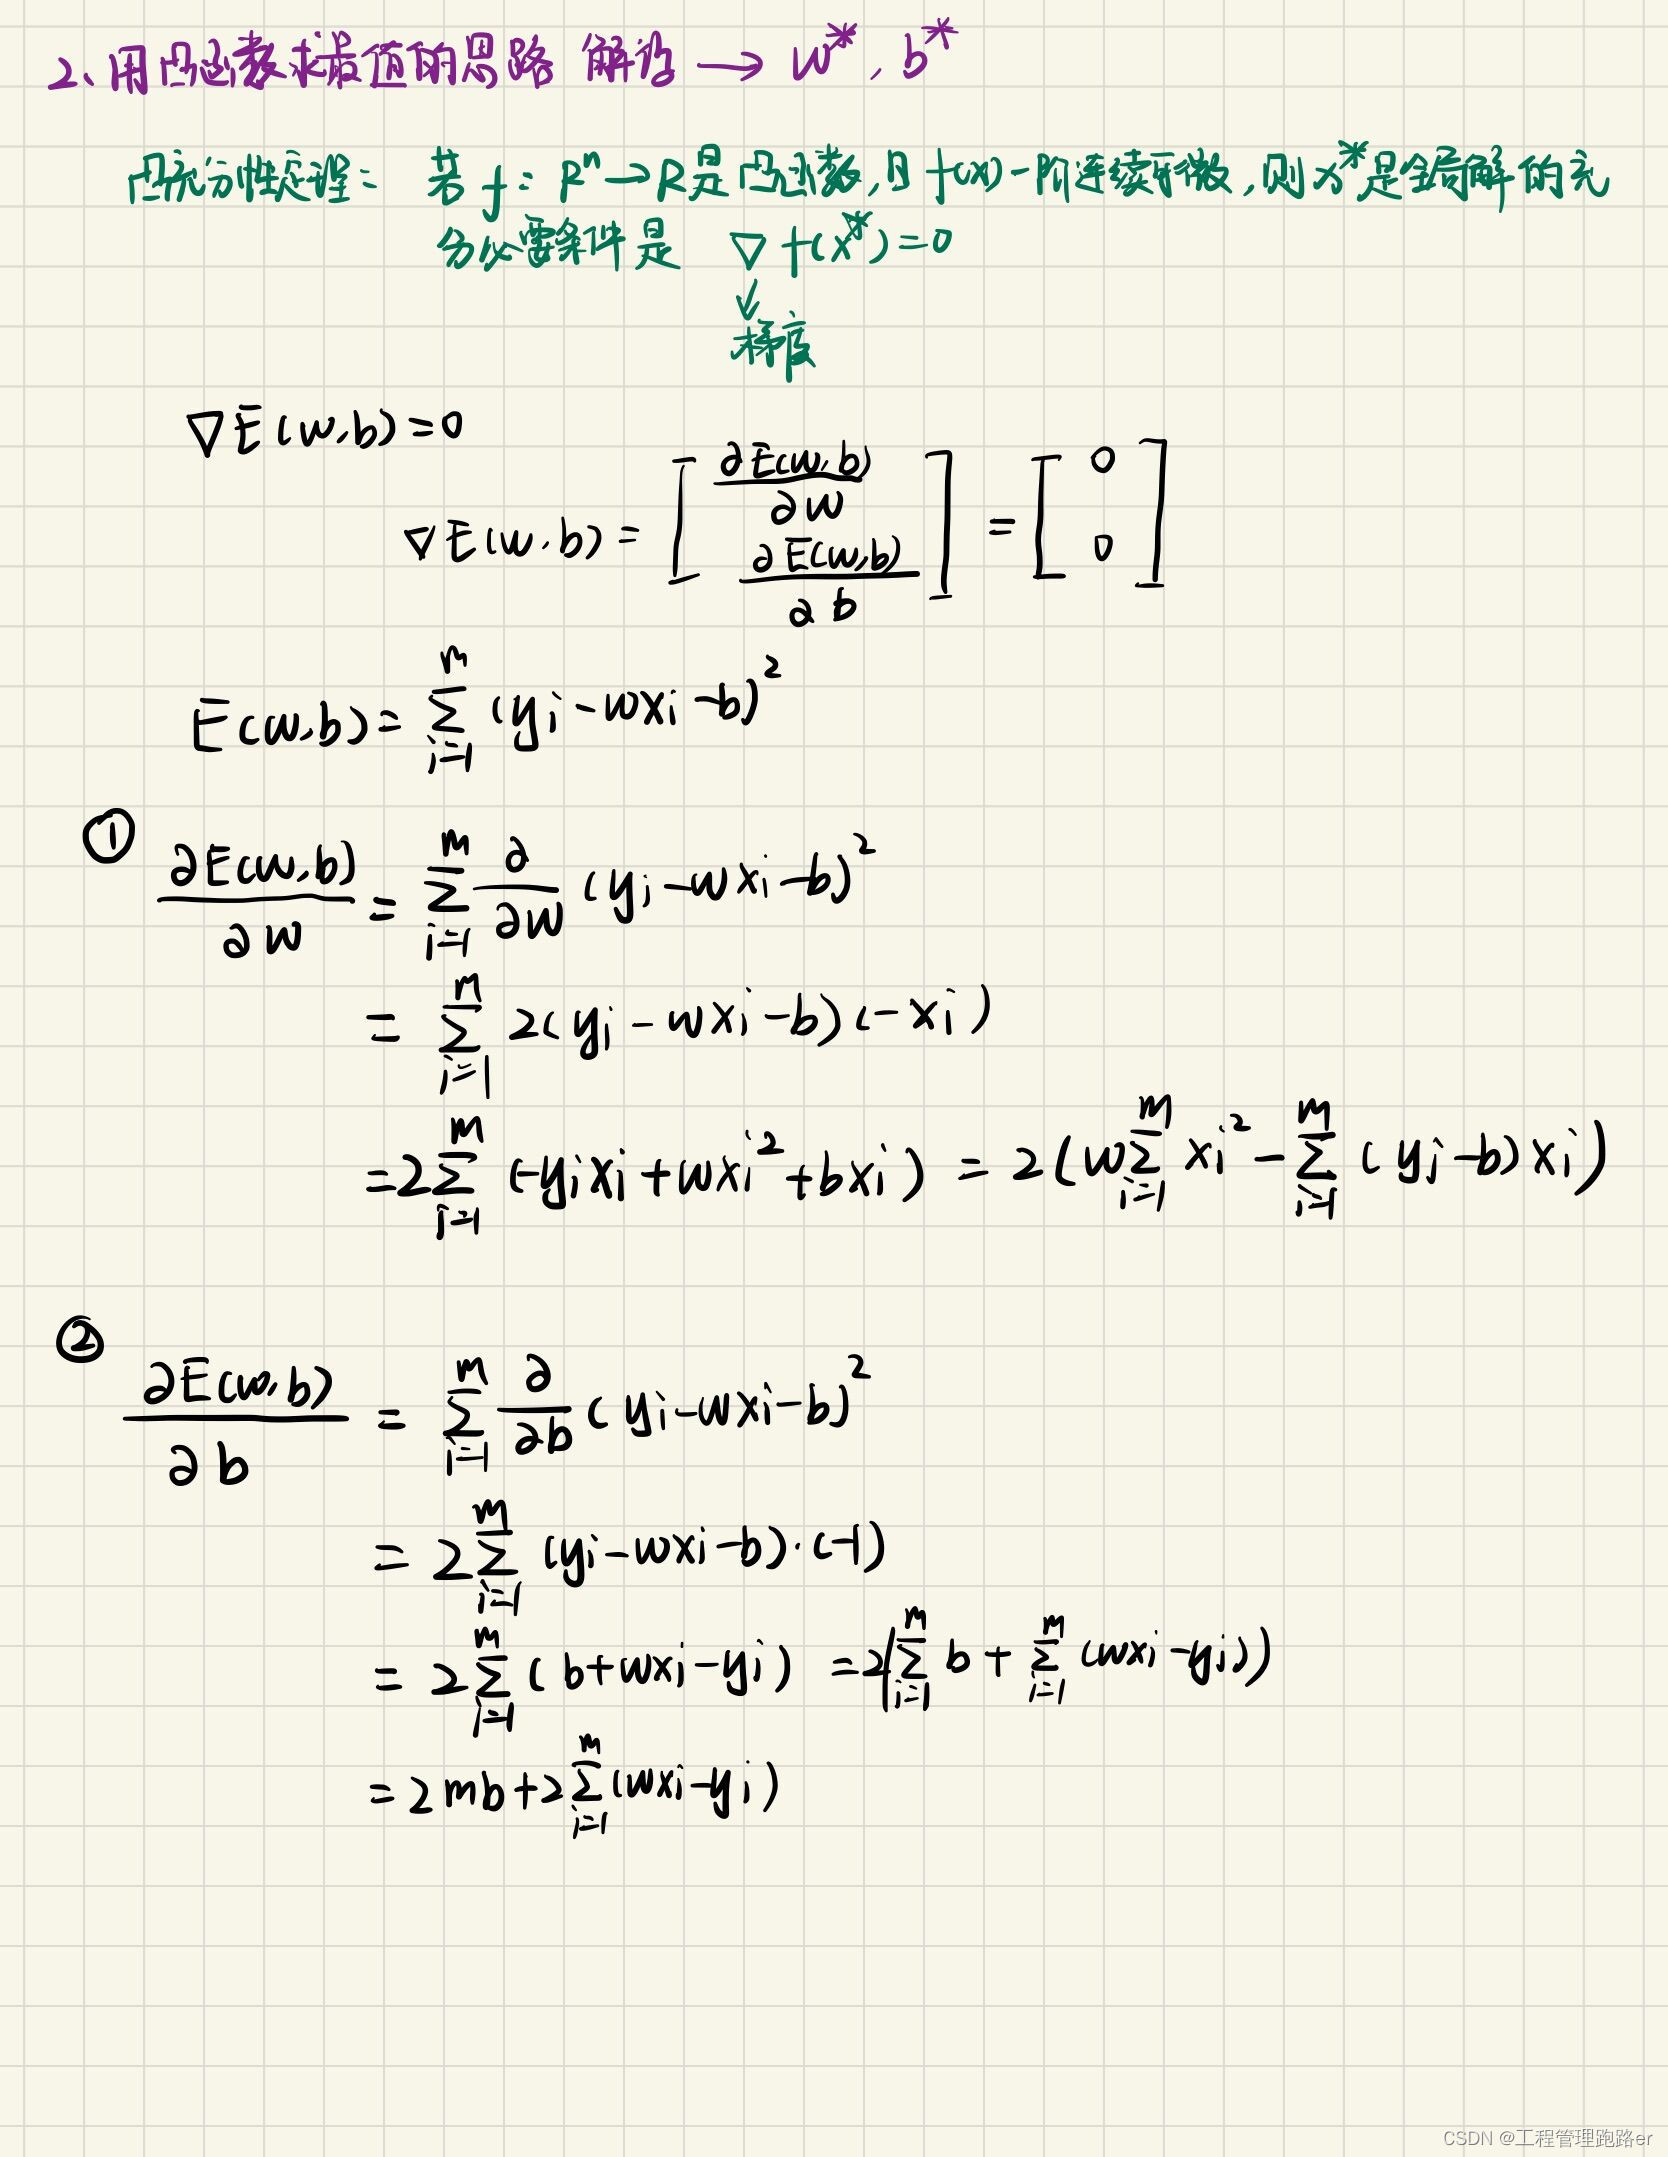 2、用凸函数求最值的思路 解得 → w*, b*
凸充分性定理： 若 f: Rⁿ→R是凸函数,且 f(x)一阶连续可微,则x*是全局解的充
分必要条件是 ∇f(x*)=0
↓
梯度
∇E(w,b)=0
∇E(w,b)= [ ∂E(w,b)/∂w ; ∂E(w,b)/∂b ] = [ 0 ; 0 ]
E(w,b)= ∑_{i=1}^{m} (yi-wxi-b)²
① ∂E(w,b)/∂w = ∑_{i=1}^{m} ∂/∂w (yi-wxi-b)²
= ∑_{i=1}^{m} 2(yi-wxi-b)(-xi)
=2∑_{i=1}^{m} (-yixi+wxi²+bxi) = 2(w∑_{i=1}^{m} xi² - ∑_{i=1}^{m} (yi-b)xi)
② ∂E(w,b)/∂b = ∑_{i=1}^{m} ∂/∂b (yi-wxi-b)²
= 2∑_{i=1}^{m} (yi-wxi-b)·(-1)
= 2∑_{i=1}^{m} (b+wxi-yi) =2(∑_{i=1}^{m} b + ∑_{i=1}^{m} (wxi-yi))
= 2mb+2∑_{i=1}^{m} (wxi-yi)
CSDN @工程管理跑路er